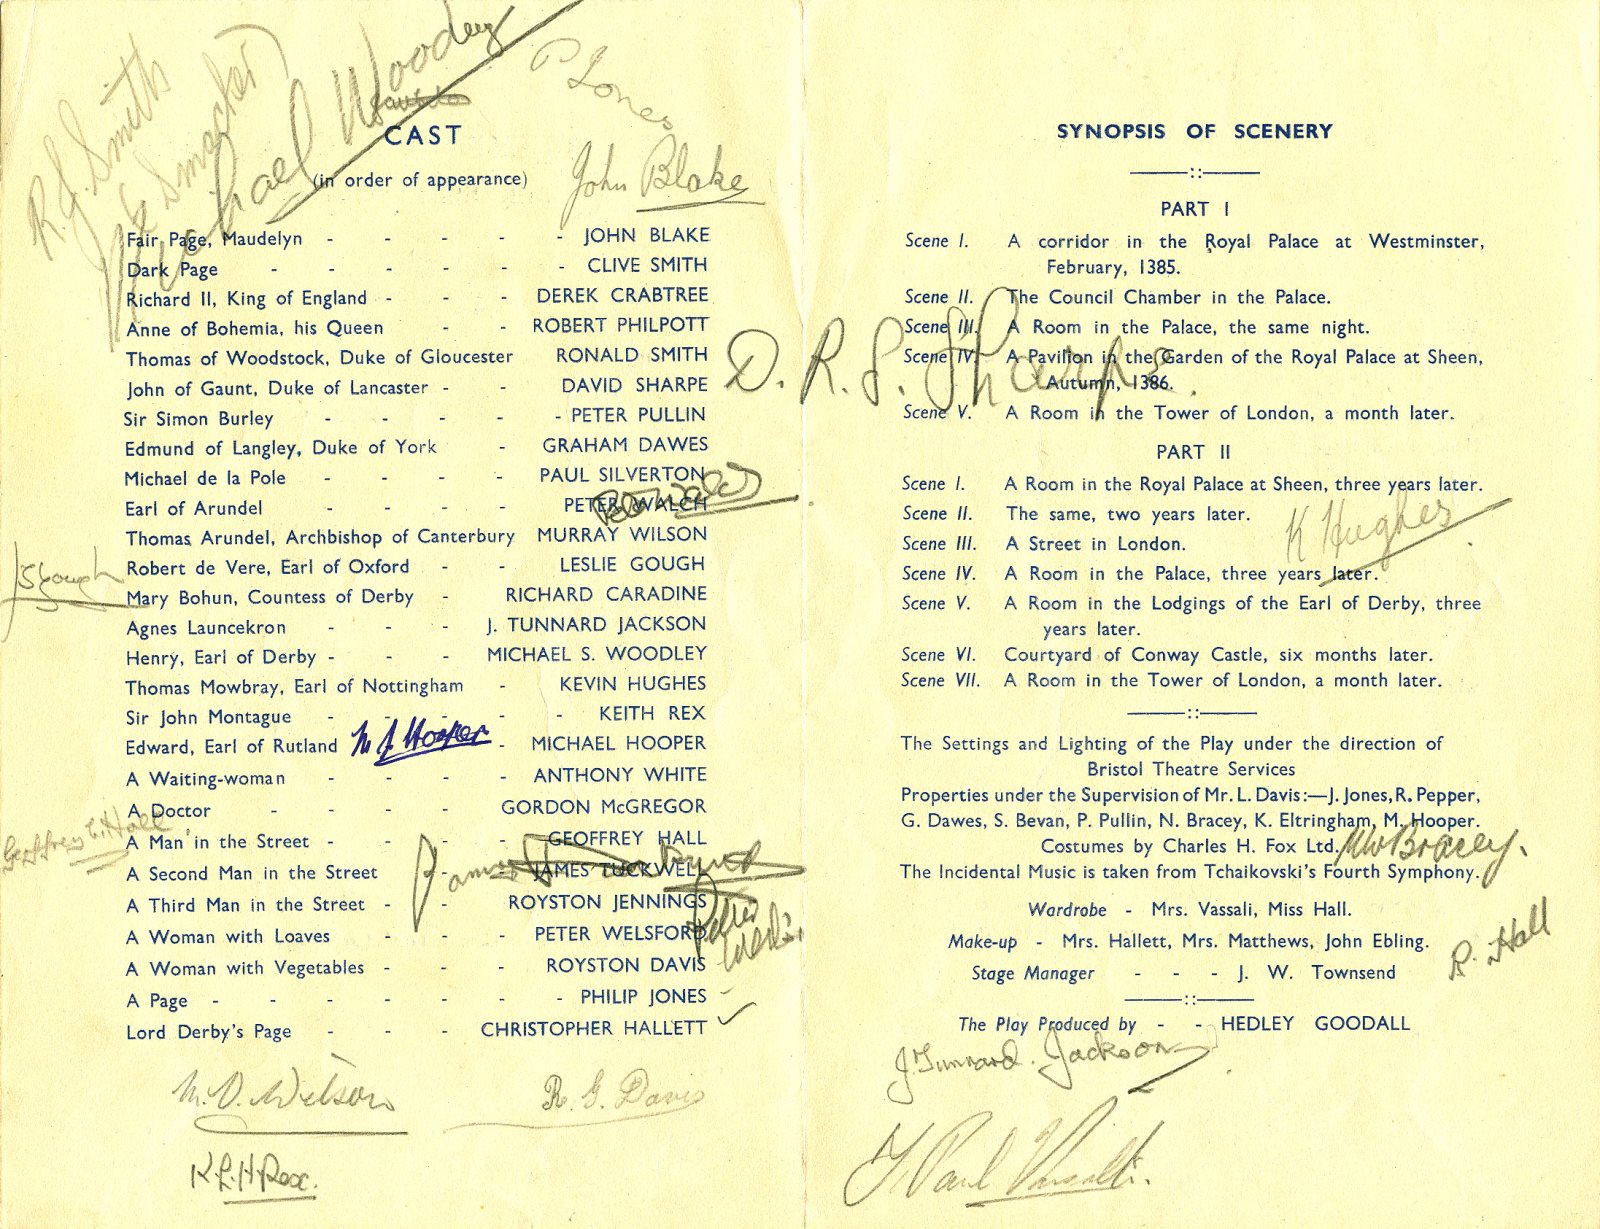 R. J. Smith
Smacker
Michael Woodley
P Jones
CAST
(in order of appearance)
John Blake
Fair Page, Maudelyn - - - - - JOHN BLAKE
Dark Page - - - - - - CLIVE SMITH
Richard II, King of England - - - DEREK CRABTREE
Anne of Bohemia, his Queen - - ROBERT PHILPOTT
Thomas of Woodstock, Duke of Gloucester RONALD SMITH
John of Gaunt, Duke of Lancaster - - DAVID SHARPE
Sir Simon Burley - - - - - PETER PULLIN
Edmund of Langley, Duke of York - GRAHAM DAWES
Michael de la Pole - - - - PAUL SILVERTON
Earl of Arundel - - - - PETER WALCH
Thomas Arundel, Archbishop of Canterbury MURRAY WILSON
Robert de Vere, Earl of Oxford - - LESLIE GOUGH
Mary Bohun, Countess of Derby - RICHARD CARADINE
Agnes Launcekron - - - J. TUNNARD JACKSON
Henry, Earl of Derby - - - MICHAEL S. WOODLEY
Thomas Mowbray, Earl of Nottingham - KEVIN HUGHES
Sir John Montague - - - - - KEITH REX
Edward, Earl of Rutland M J Hooper - MICHAEL HOOPER
A Waiting-woman - - - - ANTHONY WHITE
A Doctor - - - - GORDON McGREGOR
Geoffrey E. Hall
A Man in the Street - - - - GEOFFREY HALL
A Second Man in the Street - - JAMES TUCKWELL
A Third Man in the Street - - - ROYSTON JENNINGS
A Woman with Loaves - - - PETER WELSFORD
A Woman with Vegetables - - - ROYSTON DAVIS
A Page - - - - - - - PHILIP JONES
Lord Derby's Page - - - CHRISTOPHER HALLETT ✓
M. D. Wilson
R. G. Davis
K. L. H Rex.
SYNOPSIS OF SCENERY
PART I
Scene I. A corridor in the Royal Palace at Westminster,
February, 1385.
Scene II. The Council Chamber in the Palace.
Scene III. A Room in the Palace, the same night.
D. R. S. Sharpe.
Scene IV. A Pavilion in the Garden of the Royal Palace at Sheen,
Autumn, 1386.
Scene V. A Room in the Tower of London, a month later.
PART II
Scene I. A Room in the Royal Palace at Sheen, three years later.
Scene II. The same, two years later.
K Hughes
Scene III. A Street in London.
Scene IV. A Room in the Palace, three years later.
Scene V. A Room in the Lodgings of the Earl of Derby, three
years later.
Scene VI. Courtyard of Conway Castle, six months later.
Scene VII. A Room in the Tower of London, a month later.
The Settings and Lighting of the Play under the direction of
Bristol Theatre Services
Properties under the Supervision of Mr. L. Davis:—J. Jones, R. Pepper,
G. Dawes, S. Bevan, P. Pullin, N. Bracey, K. Eltringham, M. Hooper.
Costumes by Charles H. Fox Ltd. Bracey.
The Incidental Music is taken from Tchaikovski's Fourth Symphony.
Wardrobe - Mrs. Vassali, Miss Hall.
Make-up - Mrs. Hallett, Mrs. Matthews, John Ebling.
R. Hall
Stage Manager - - - J. W. Townsend
The Play Produced by - - HEDLEY GOODALL
J. Tunnard. Jackson
Paul Vassalli.